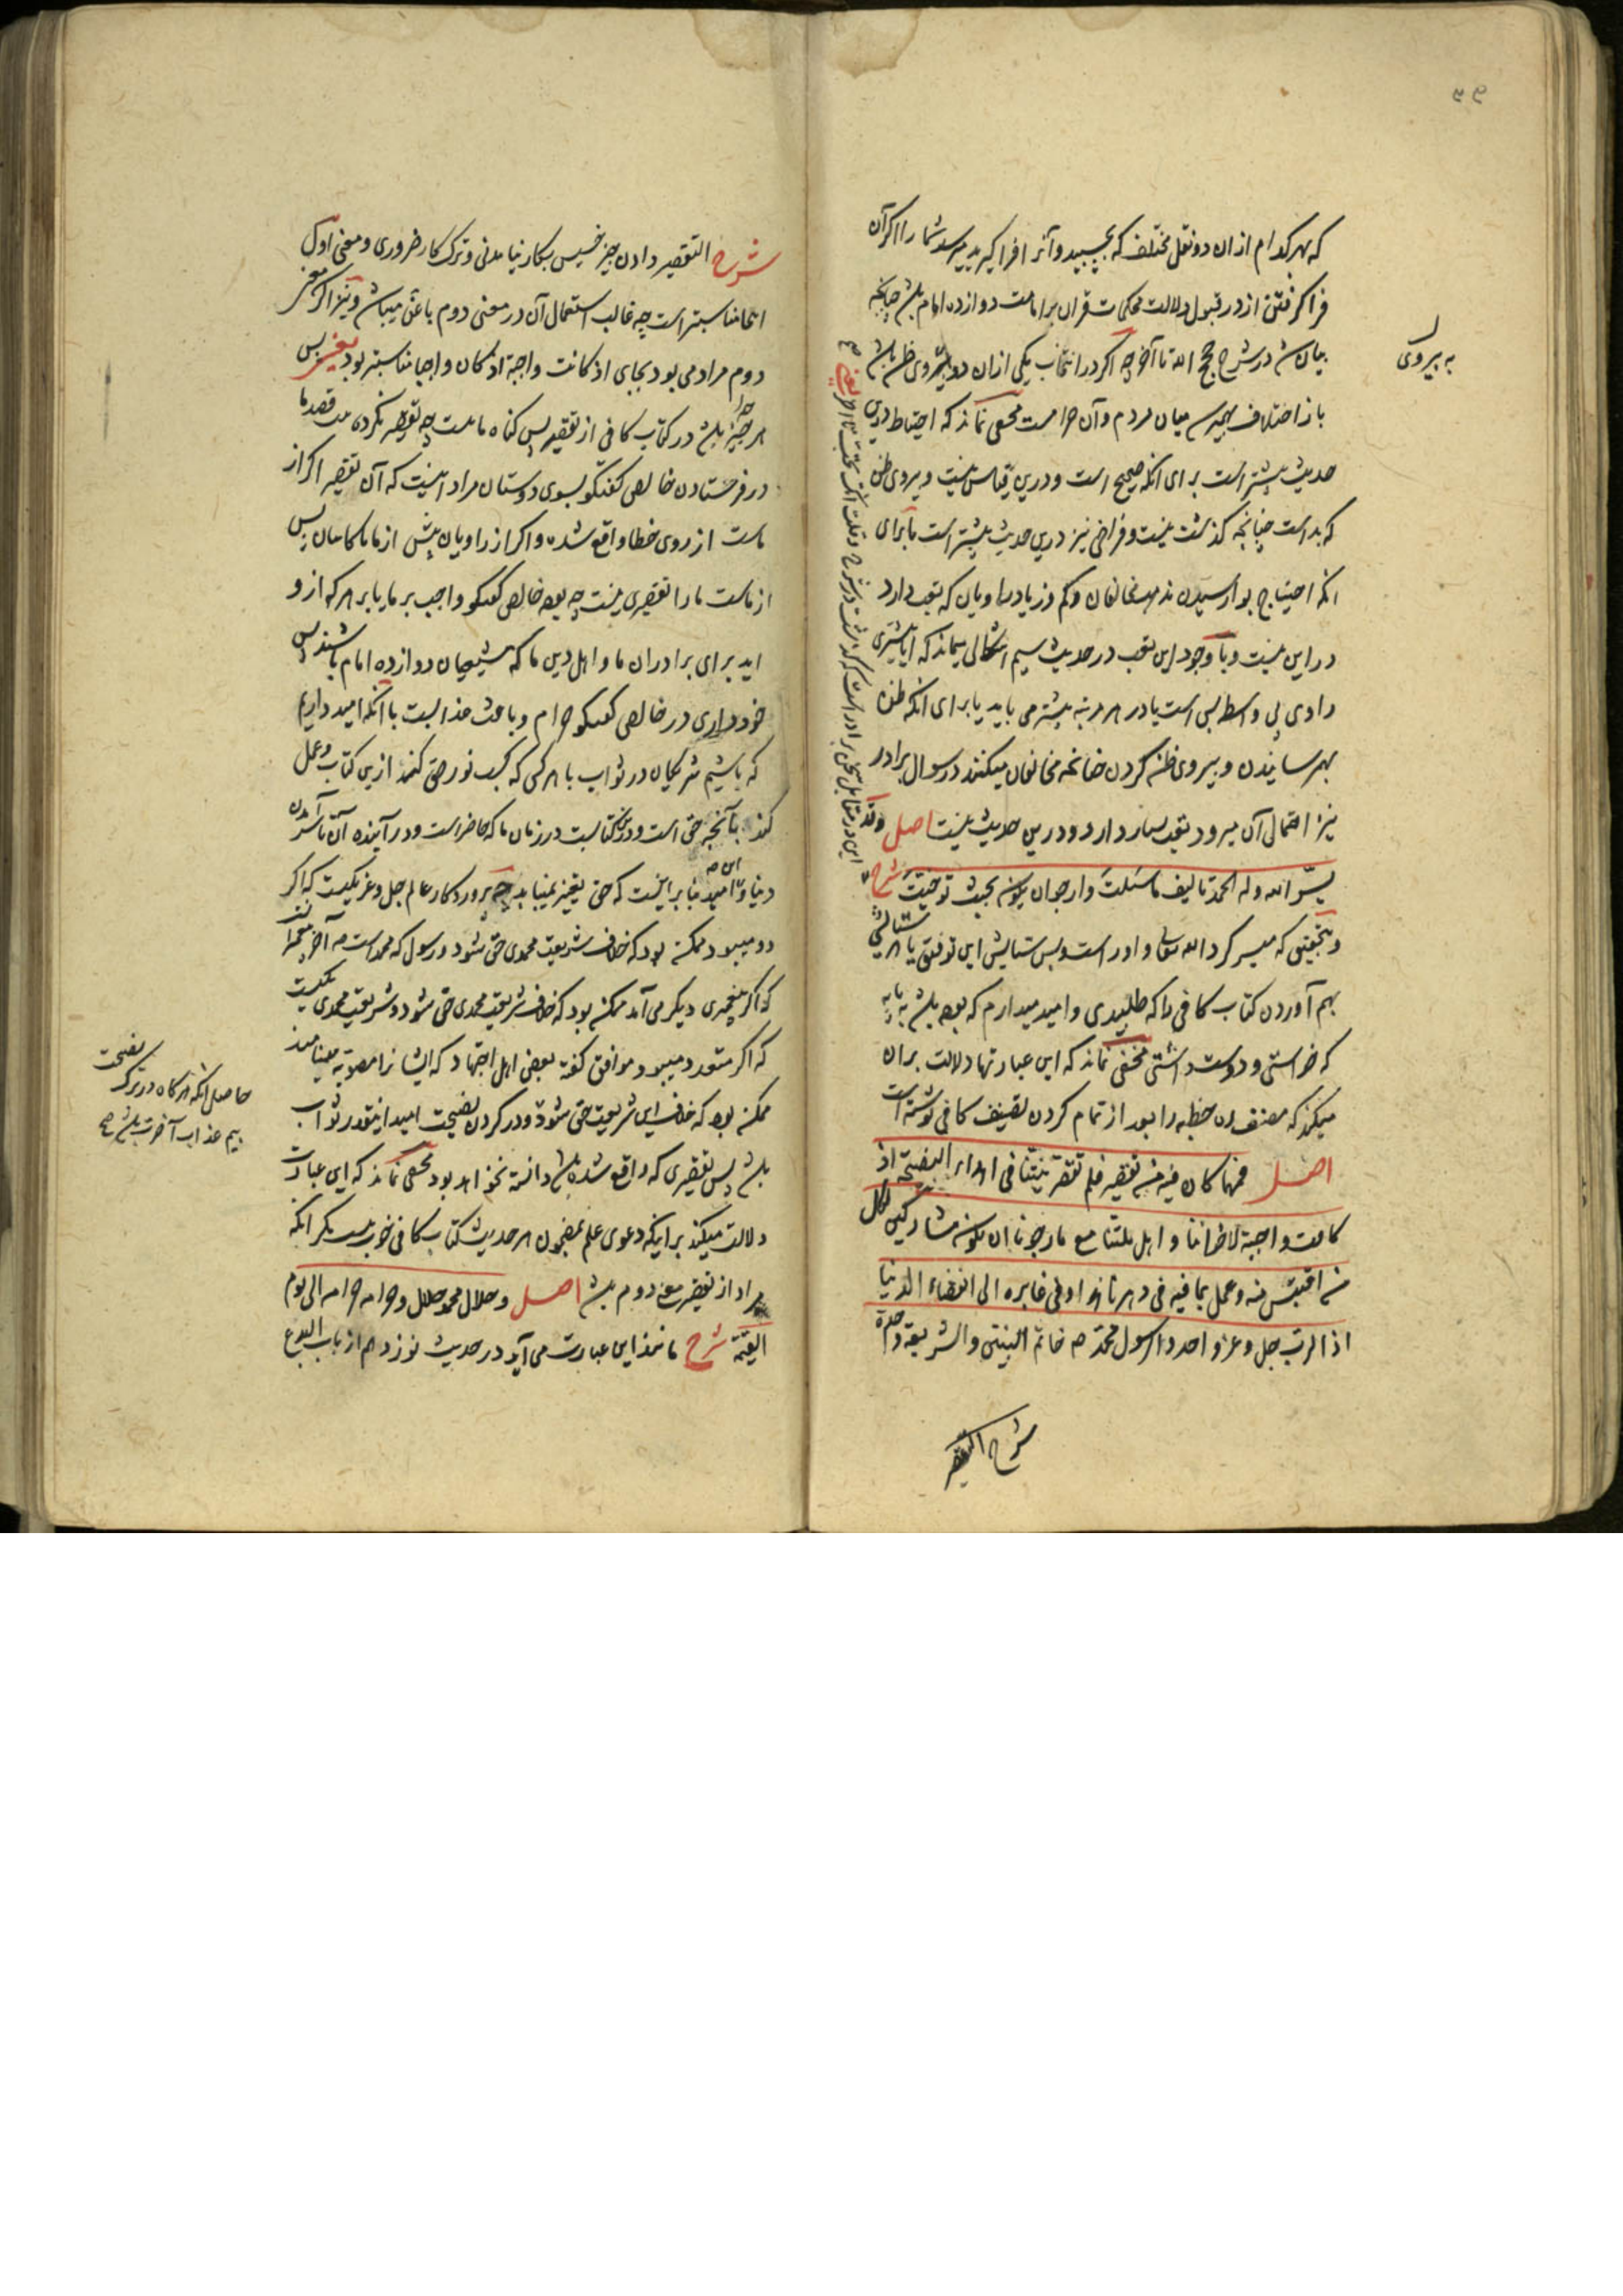 ۳۹
که بهر کدام از ان دو نقل مختلف که بچسپید و آنرا فرا کیرید میرسد شما را اکر آن
فرا کرفتن از در قبول دلالت محکمات قران بر امامت دوازده امام باشد چنانچه
بیان شد در شرح حجج الله تا آخر چه اکر در انتخاب یکی از ان دو پیروی ظن باشد
به پیروی
باز اختلاف بهم میرسد میان مردم و آن حرامست مخفی نماند که احتیاط درین
حدیث بیشتر است برای انکه صحیح است و درین قیاس نیست و پیروی ظن
که بد است چنانچه کذشت نیست و فراخی نیز درین حدیث بیشتر است یا برای
انکه احتیاج بوارسیدن مذهب مخالفان و کم و زیاد راویان که تعب دارد
در این نیست و با وجود این تعب در حدیث سیم اشکالی میماند که ایا بیشتری
راوی بی واسطه بس است یا در هر مرتبه بیشتر می باید یا برای انکه ظن
بهم رسانیدن و پیروی ظن کردن چنانچه مخالفان میکنند در سوال برادر
نیز احتمال آن میرود بقید بسیار دارد و درین حدیث نیست اصل وقد
یسّر الله وله الحمد تالیف ما سئلت وارجو ان یکون بحیث توخّیت شرح
و بتحقیق که میسر کرد الله تعالی و او راست و بس ستایش این توفیق یا هر ستایشی
بهم آوردن کتاب کافی را که طلبیدی و امید میدارم که بوده باشد به پایه
که خواستی و دوست داشتی مخفی نماند که این عبارتها دلالت بر ان
میکند که مصنف این خطبه را بعد از تمام کردن تصنیف کافی نوشته است
اصل فمهما کان فیه من تقصیر فلم تقصر نیتنا فی اهداء النصیحة اذ
کانت واجبة لاخواننا و اهل ملتنا مع ما رجونا ان نکون مشارکین لکل
من اقتبس منه وعمل بما فیه فی دهرنا هذا وفی غابره الی انقضاء الدنیا
اذ الرب جل وعز واحد والرسول محمد ص خاتم النبیین والشریعة واحدة
شرح التقصیر
شرح التقصیر دادن چیز خسیس بکار نیامدنی و ترک کار ضروری و معنی اول
اینجا مناسبتر است چه غالب استعمال آن در معنی دوم با عن میباشد و نیز اکر معنی
دوم مراد می بود بجای اذ کانت واجبة اذ کان واجبا مناسبتر بود یعنی پس
هر چیز باشد در کتاب کافی از تقصیر پس کناه ماست چه تقصیر نکرده است قصد ما
در فرستادن خالص کفتکو بسوی دوستان مراد اینست که آن تقصیر اکر از
ماست از روی خطا واقع شده و اکر از راویان پیش از ما یا کاتبان پس
از ماست ما را تقصیری نیست چه بوده خالص کفتکو واجب بر ما یا بر هر که از و
اید برای برادران ما و اهل دین ما که شیعیان دوازده امام باشند پس
خودداری در خالص کفتکو حرام و باعث عذابست با آنکه امید داریم
که باشیم شریکان در ثواب با هر کس که کسب نور حق کند ازین کتاب و عمل
کند بآنچه حق است و درین کتابست در زمان ما که حاضر است و در آینده آن تا سر آمدن
دنیا و این امید بنا بر اینست که حق تغیر نمییابد چه پروردکار عالم جل و عز یکیست که اکر
دو میبود ممکن بود که خلاف شریعت محمدی حق شود و رسول که محمد است ص آخر پیغمبرانست
که اکر پیغمبری دیکر می آمد ممکن بود که خلاف شریعت محمدی حق شود و شریعت محمدی یکیست
که اکر متعدد میبود موافق کفته بعض اهل اجتهاد که ایشانرا مصوبه مینامند
ممکن بود که خلاف این شریعت حق شود و در کردن نصیحت امید اینقدر ثواب
باشد پس تقصیری که واقع شده باشد دانسته نخواهد بود مخفی نماند که این عبارت
دلالت میکند بر اینکه دعوی علم بمضمون هر حدیث کتاب کافی خوب نیست مکر انکه
مراد از تقصیر معنی دوم باشد اصل و حلال محمد حلال وحرامه حرام الی یوم
القیمة شرح مانند این عبارت می آید در حدیث نوزدهم از باب البدع
حاصل انکه هر کاه در ترک نصیحت
بیم عذاب آخرت باشد